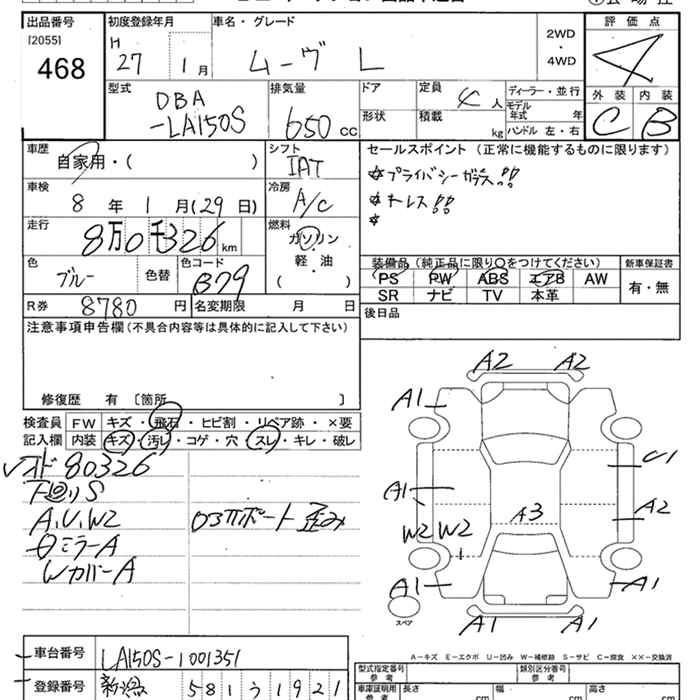 出品番号 [2055] 468
初度登録年月 H 27 1月
車名・グレード ムーヴ L
2WD・4WD
評価点 4
外装 C 内装 B
型式 DBA -LA150S
排気量 650 cc
ドア 形状
定員 4人
積載 kg
ディーラー・並行
モデル年式 年
ハンドル 左・右
車歴 自家用・( )
シフト IAT
車検 8年 1月(29日)
冷房 A/C
走行 8万0千326km
燃料 ガソリン 軽・油 ( )
色 ブルー 色替
色コード B79
R券 8780円
名変期限 月 日
セールスポイント (正常に機能するものに限ります)
☆プライバシーガラス!!
☆ナレス!!
☆
装備品(純正品に限り○をつけてください)
PS PW ABS エアB AW
SR ナビ TV 本革
新車保証書 有・無
後日品
注意事項申告欄(不具合内容等は具体的に記入して下さい)
修復歴 有 〔箇所 〕
検査員記入欄
FW キズ・飛石・ヒビ割・リペア跡・×要
内装 キズ・汚レ・コゲ・穴・スレ・キレ・破レ
80326
下回りS
A,U,W2
ミラーA
WカバーA
サポート歪み
A2 A2
A1
C1
A1
A2
A3
W2 W2
A1 A1
A1 A1
スペア
A-キズ E-エクボ U-凹み W-補修跡 S-サビ C-腐食 ××-交換済
車台番号 LA150S-1001351
登録番号 新潟 581 う 1921
型式指定番号 参考
類別区分番号 参考
車庫証明用 参考
長さ cm 幅 cm 高さ cm